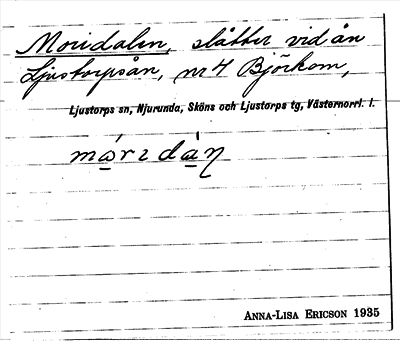 Moridalen, slåtter vid ån
Ljustorpsån, nr 4 Björkom,
Ljustorps sn, Njurunda, Sköns och Ljustorps tg, Västernorrl. l.
ANNA-LISA ERICSON 1935